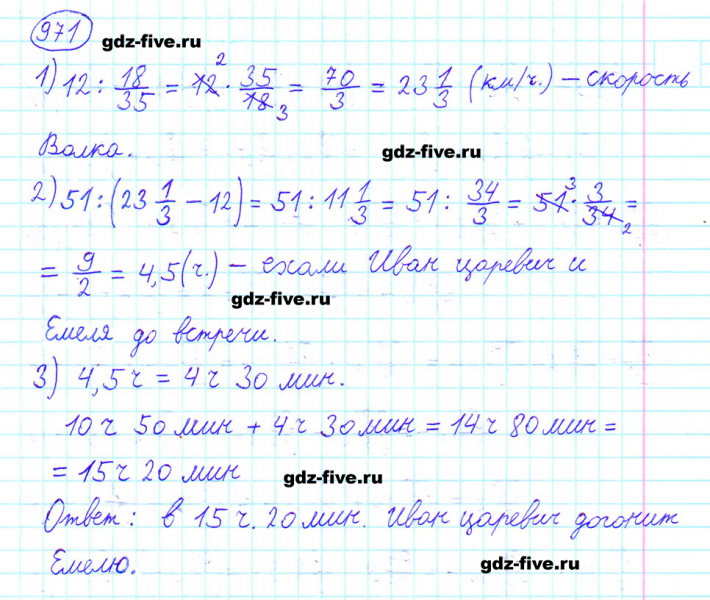 971
gdz-five.ru
1) 12 : 18/35 = 12² · 35/18₃ = 70/3 = 23 1/3 (км/ч.) – скорость
Волка.
gdz-five.ru
2) 51 : (23 1/3 – 12) = 51 : 11 1/3 = 51 : 34/3 = 51³ · 3/34₂ =
= 9/2 = 4,5 (ч.) – ехали Иван царевич и
gdz-five.ru
Емеля до встречи.
3) 4,5 ч = 4 ч 30 мин.
10 ч 50 мин + 4 ч 30 мин = 14 ч 80 мин =
= 15 ч 20 мин
gdz-five.ru
Ответ: в 15 ч. 20 мин. Иван царевич догонит
Емелю.
gdz-five.ru